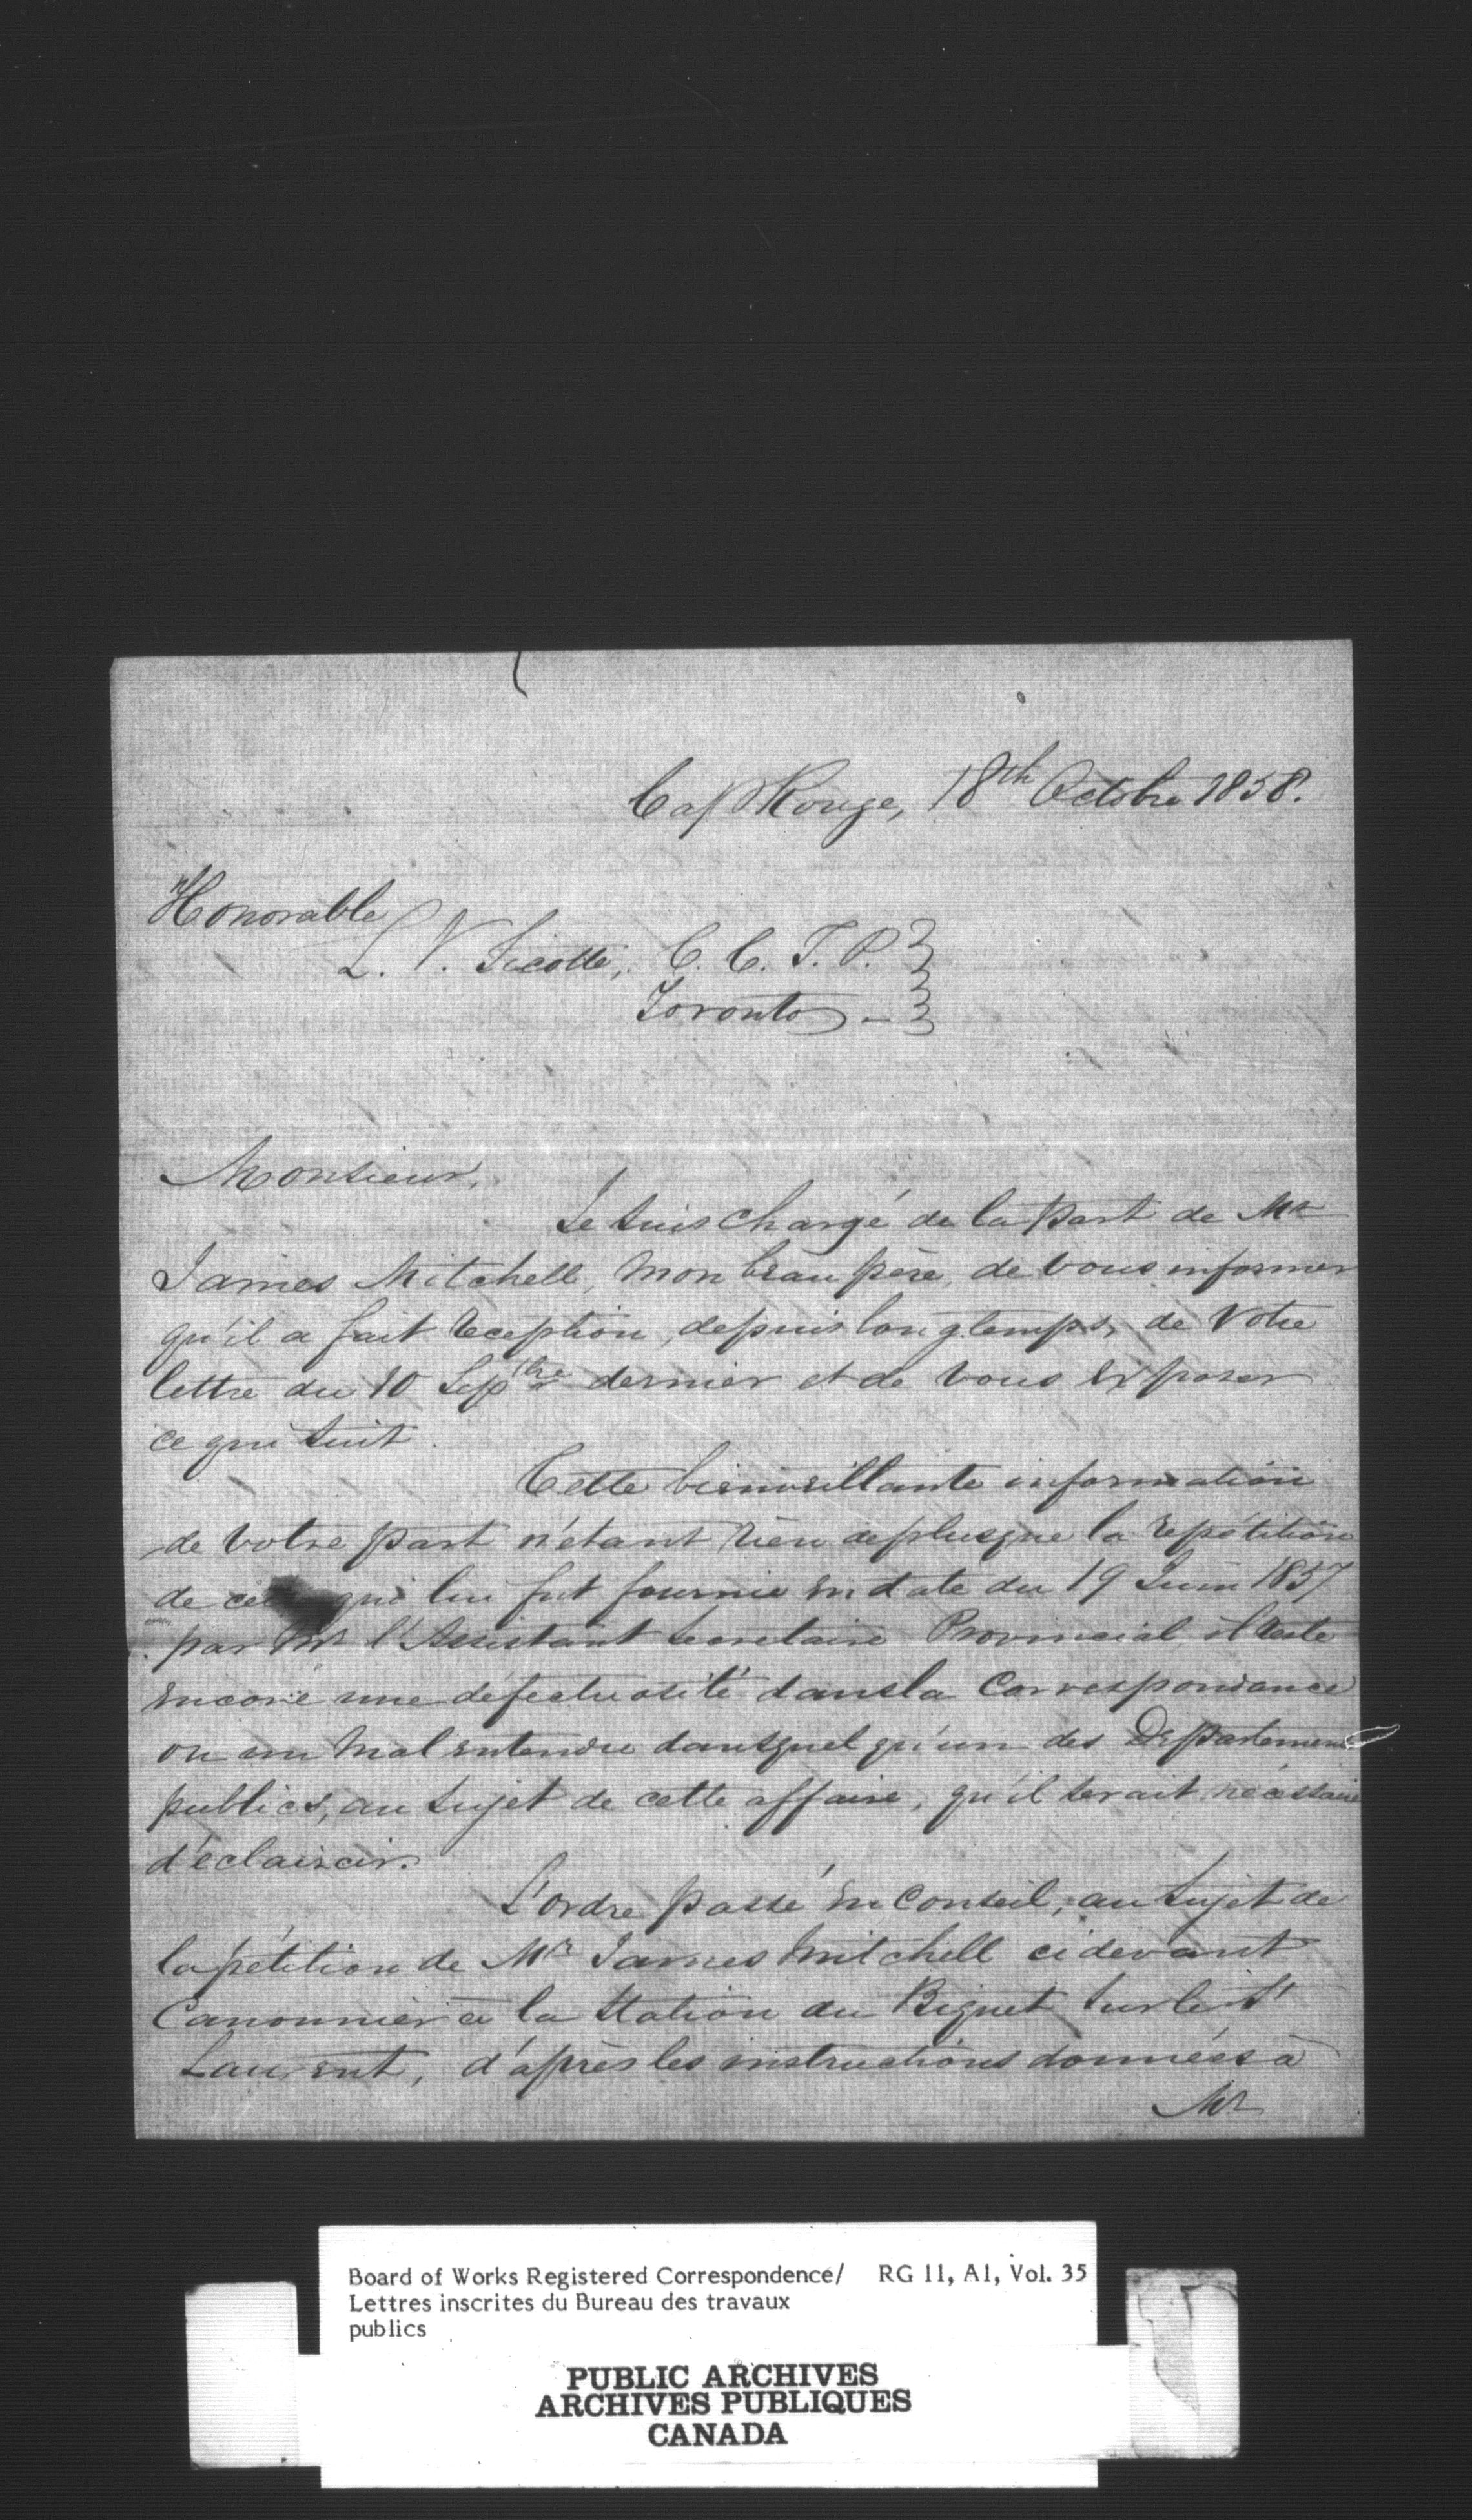 Cap Rouge, 18th Octobre 1858.
Honorable
L. V. Sicotte, C. C. T. P.
Toronto -
Monsieur,
Je suis chargé de la part de Mr
James Mitchell, mon beau père, de vous informer
qu'il a fait reception, depuis longtemps, de votre
lettre du 10 Sepbre dernier et de vous exposer
ce qui suit.
Cette bienveillante information
de votre part n'étant rien de plus que la répétition
de qui lui fut fournie en date du 19 Juin 1857
par Mr l'Assistant Secretaire Provincial, il reste
encore une défectuosité dans la Correspondance
ou un mal entendu dans quel qu'un des Departements
publics, au sujet de cette affaire, qu'il serait nécessaire
d'éclaircir.
L'ordre passé en Conseil, au sujet de
la pétition de Mr James Mitchell ci devant
Canonnier à la Station du Biquet sur le St
Laurent, d'après les instructions données à
Mr
Board of Works Registered Correspondence/ RG 11, A1, Vol. 35
Lettres inscrites du Bureau des travaux
publics
PUBLIC ARCHIVES
ARCHIVES PUBLIQUES
CANADA